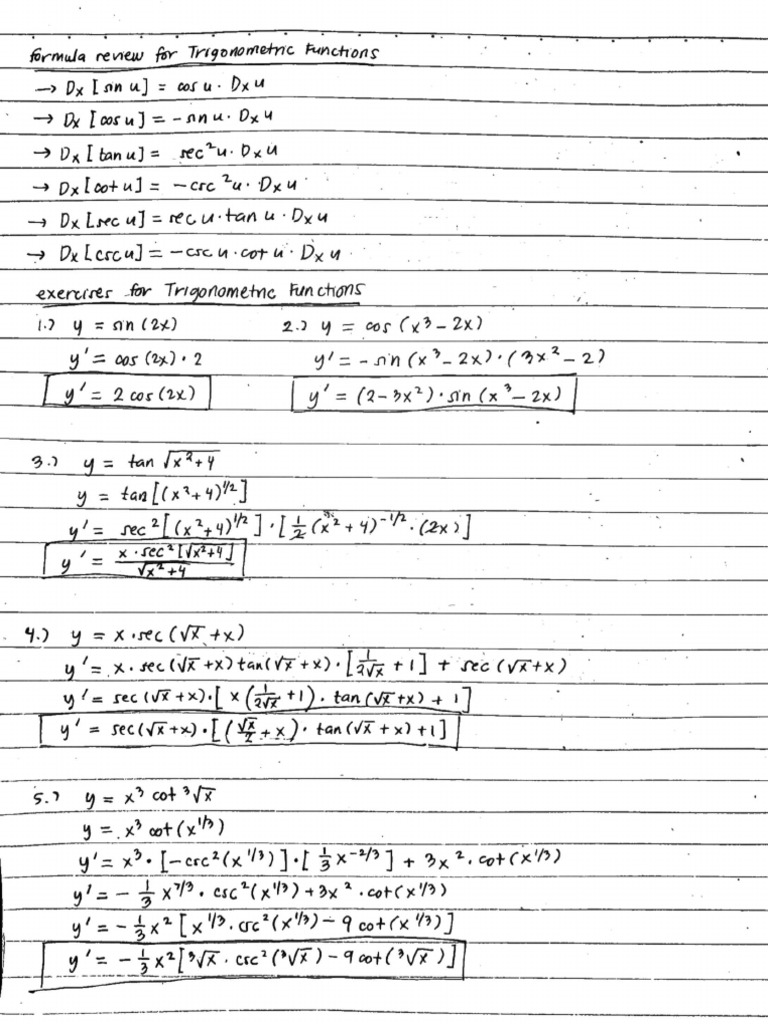 formula review for Trigonometric Functions
→ Dx [sin u] = cos u · Dx u
→ Dx [cos u] = -sin u · Dx u
→ Dx [tan u] = sec²u · Dx u
→ Dx [cot u] = -csc²u · Dx u
→ Dx [sec u] = sec u · tan u · Dx u
→ Dx [csc u] = -csc u · cot u · Dx u
exercises for Trigonometric Functions
1.) y = sin (2x) 2.) y = cos (x³ - 2x)
y' = cos (2x) · 2 y' = - sin (x³ - 2x) · (3x² - 2)
y' = 2 cos (2x) y' = (2 - 3x²) · sin (x³ - 2x)
3.) y = tan √(x²+4)
y = tan [(x²+4)^(1/2)]
y' = sec² [(x²+4)^(1/2)] · [1/2 (x²+4)^(-1/2) · (2x)]
y' = x · sec² [√(x²+4)] / √(x²+4)
4.) y = x · sec (√x + x)
y' = x · sec (√x + x) tan (√x + x) · [1/(2√x) + 1] + sec (√x + x)
y' = sec (√x + x) · [x (1/(2√x) + 1) · tan (√x + x) + 1]
y' = sec (√x + x) · [(√x/2 + x) · tan (√x + x) + 1]
5.) y = x³ cot ³√x
y = x³ cot (x^(1/3))
y' = x³ · [-csc² (x^(1/3))] · [1/3 x^(-2/3)] + 3x² · cot (x^(1/3))
y' = - 1/3 x^(7/3) · csc² (x^(1/3)) + 3x² · cot (x^(1/3))
y' = - 1/3 x² [x^(1/3) · csc² (x^(1/3)) - 9 cot (x^(1/3))]
y' = - 1/3 x² [³√x · csc² (³√x) - 9 cot (³√x)]